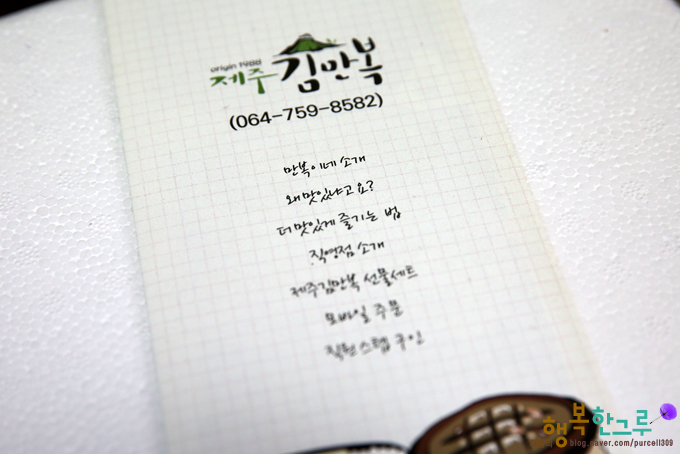 origin 1988
제주 김만복
(064-759-8582)
만복이네 소개
왜 맛있냐고요?
더 맛있게 즐기는 법
직영점 소개
제주김만복 선물세트
모바일 주문
직원 스텝 구인
행복한그루
blog.naver.com/purcell309